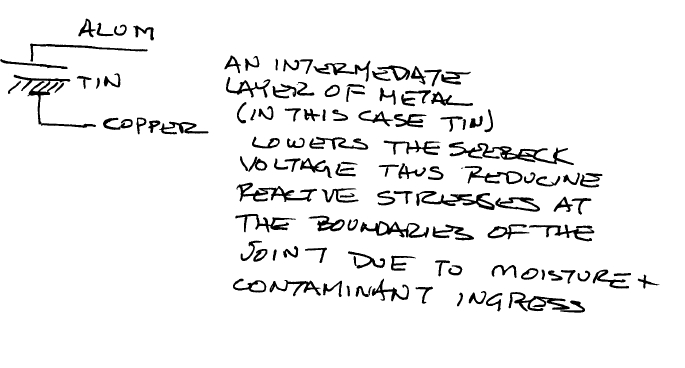 ALUM
TIN
COPPER
AN INTERMEDIATE
LAYER OF METAL
(IN THIS CASE TIN)
LOWERS THE SEEBECK
VOLTAGE THUS REDUCING
REACTIVE STRESSES AT
THE BOUNDARIES OF THE
JOINT DUE TO MOISTURE +
CONTAMINANT INGRESS